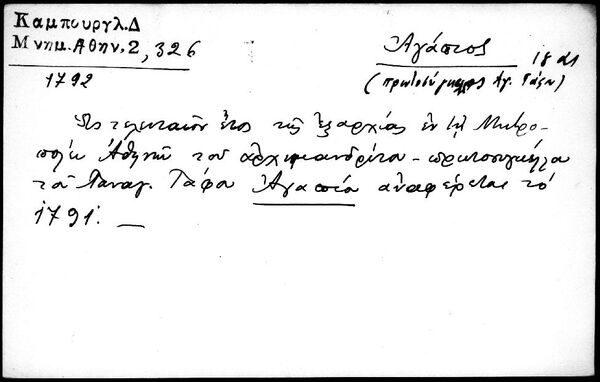 Καμπουργλ.Δ
Μνημ.Αθην.2, 326
Ἀγάπιος
18 α1
1792
(πρωτοσύγκελλος Ἁγ. Τάφου)
Ὡς τελευταῖον ἔτος τῆς ἐξαρχίας ἐν τῇ Μητρο-
πόλει Ἀθηνῶν τοῦ ἀρχιμανδρίτου - πρωτοσυγκέλλου
τοῦ Παναγ. Τάφου Ἀγαπίου ἀναφέρεται τὸ
1791.